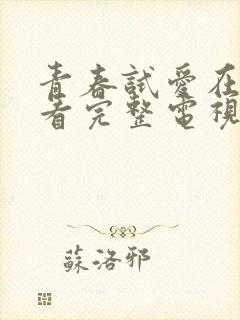 青春試愛在
看完整電視
蘇洛邪